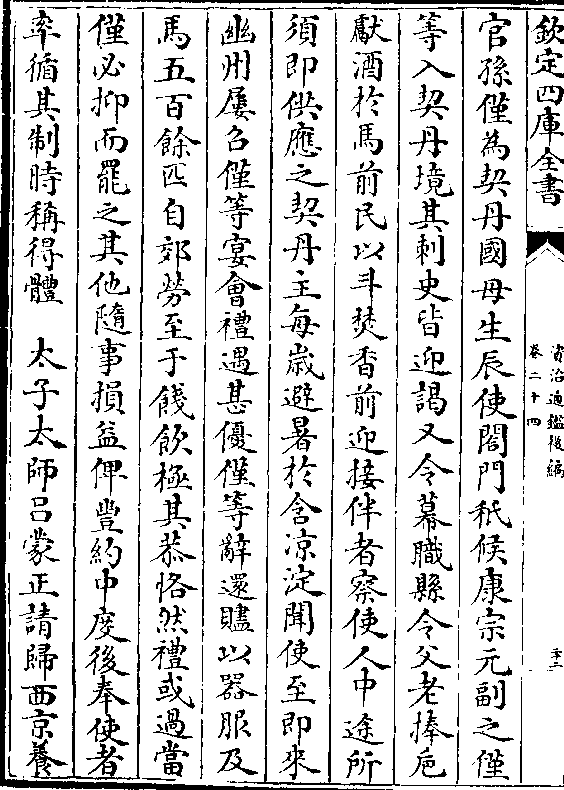 欽定四庫全書
資治通鑑後編
卷二十四
官孫僅為契丹國母生辰使閤門祇候康宗元副之僅
等入契丹境其刺史皆迎謁又令幕職縣令父老捧巵
獻酒於馬前民以斗焚香前迎接伴者察使人中途所
須即供應之契丹主每歳避暑於含凉淀聞使至即來
幽州屢召僅等宴會禮遇甚優僅等辭還贐以器服及
馬五百餘匹自郊勞至于餞飲極其恭恪然禮或過當
僅必抑而罷之其他隨事損益俾豐約中度後奉使者
率循其制時稱得體　太子太師吕蒙正請歸西京養